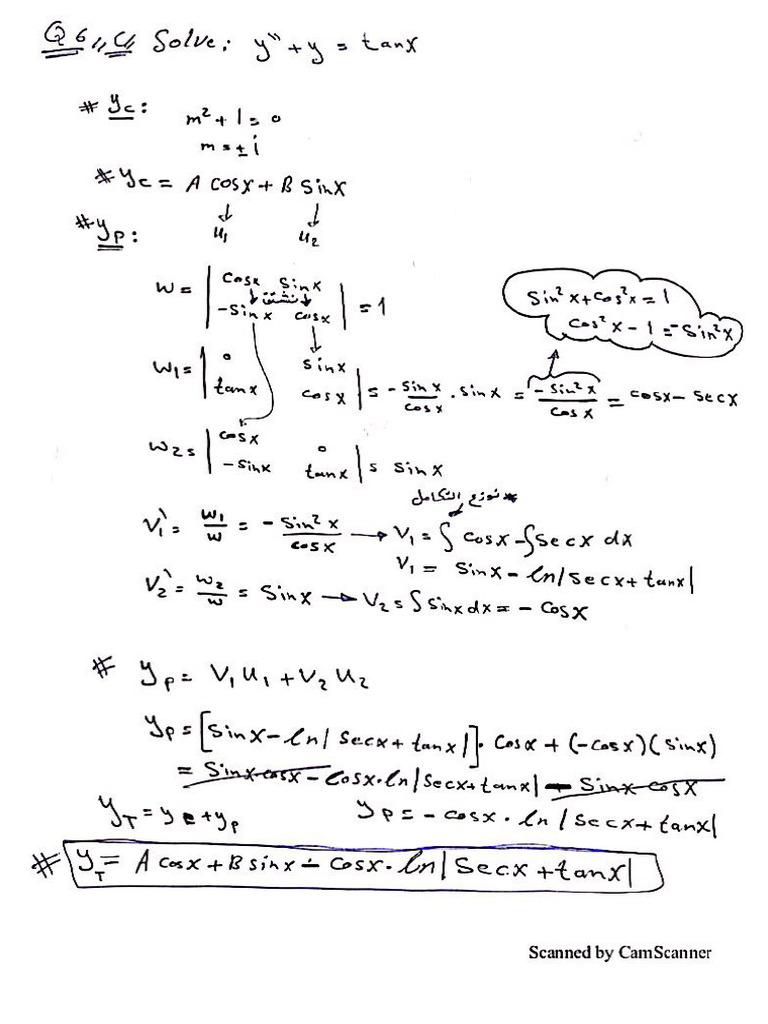 Q6,, C,, Solve: y'' + y = tanx
# yc:
m² + 1 = 0
m = ± i
# yc = A cosx + B sinx
↓ ↓
u₁ u₂
# yp:
w = | cosx sinx
نشتق
-sinx cosx | = 1
sin²x + cos²x = 1
cos²x - 1 = -sin²x
w₁ = | 0 sinx
tanx cosx | = - sinx/cosx . sinx = -sin²x/cosx = cosx - secx
w₂ = | cosx 0
-sinx tanx | = sinx
* توزع التكامل
v₁' = w₁/w = - sin²x/cosx → v₁ = ∫ cosx - ∫ secx dx
v₁ = sinx - ln|secx + tanx|
v₂' = w₂/w = sinx → v₂ = ∫ sinx dx = - cosx
# yp = v₁ u₁ + v₂ u₂
yp = [sinx - ln|secx + tanx|] · cosx + (-cosx)(sinx)
= sinx cosx - cosx · ln|secx + tanx| - sinx cosx
y_T = yc + yp yp = - cosx · ln|secx + tanx|
# y_T = A cosx + B sinx - cosx · ln|secx + tanx|
Scanned by CamScanner